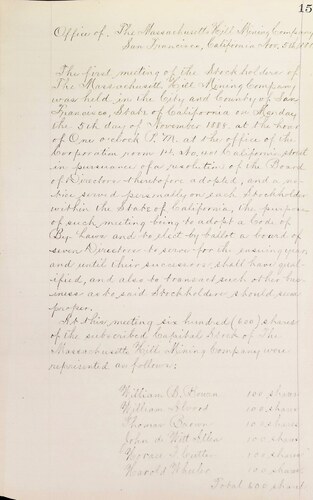 15
Office of The Massachusetts Hill Mining Company
San Francisco, California Nov. 5th, 188
The first meeting of the Stockholders of
The Massachusetts Hill Mining Company
was held in the City and County of San
Francisco, State of California on Monday
the 5th day of November 1888 at the hour
of One o'clock P.M. at the office of the
Corporation room California street
in pursuance of a resolution of the Board
of Directors theretofore adopted, and a no-
tice served personally on each Stockholder
within the State of California, the purpose
of such meeting being to adopt a Code of
By Laws and to elect by ballot a board of
seven Directors to serve for the ensuing year
and until their successors shall have qual-
ified, and also to transact such other bus-
iness as to said Stockholders should seem
proper.
At this meeting six hundred (600) shares
of the subscribed Capital Stock of The
Massachusetts Hill Mining Company were
represented as follows:
William B. 100 shares
William 100 shares
Thomas 100 shares
John de Witt Allen 100 shares
100 shares
Harold Wheeler 100 shares
Total 600 shares